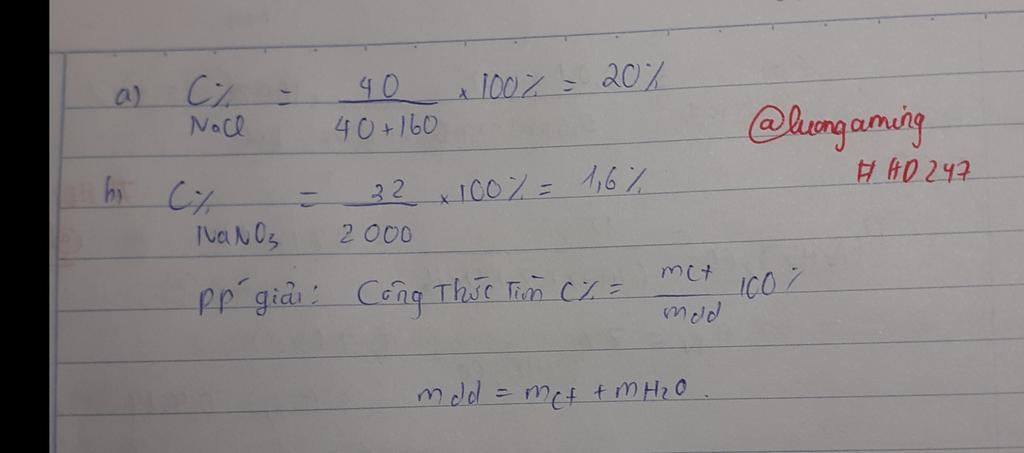 a) C%NaCl = 40/(40+160) × 100% = 20%
@luongaming
# HD247
b) C%NaNO3 = 32/2000 × 100% = 1,6%
pp' giải: Công Thức Tính C% = mct/mdd 100%
mdd = mct + mH2O.